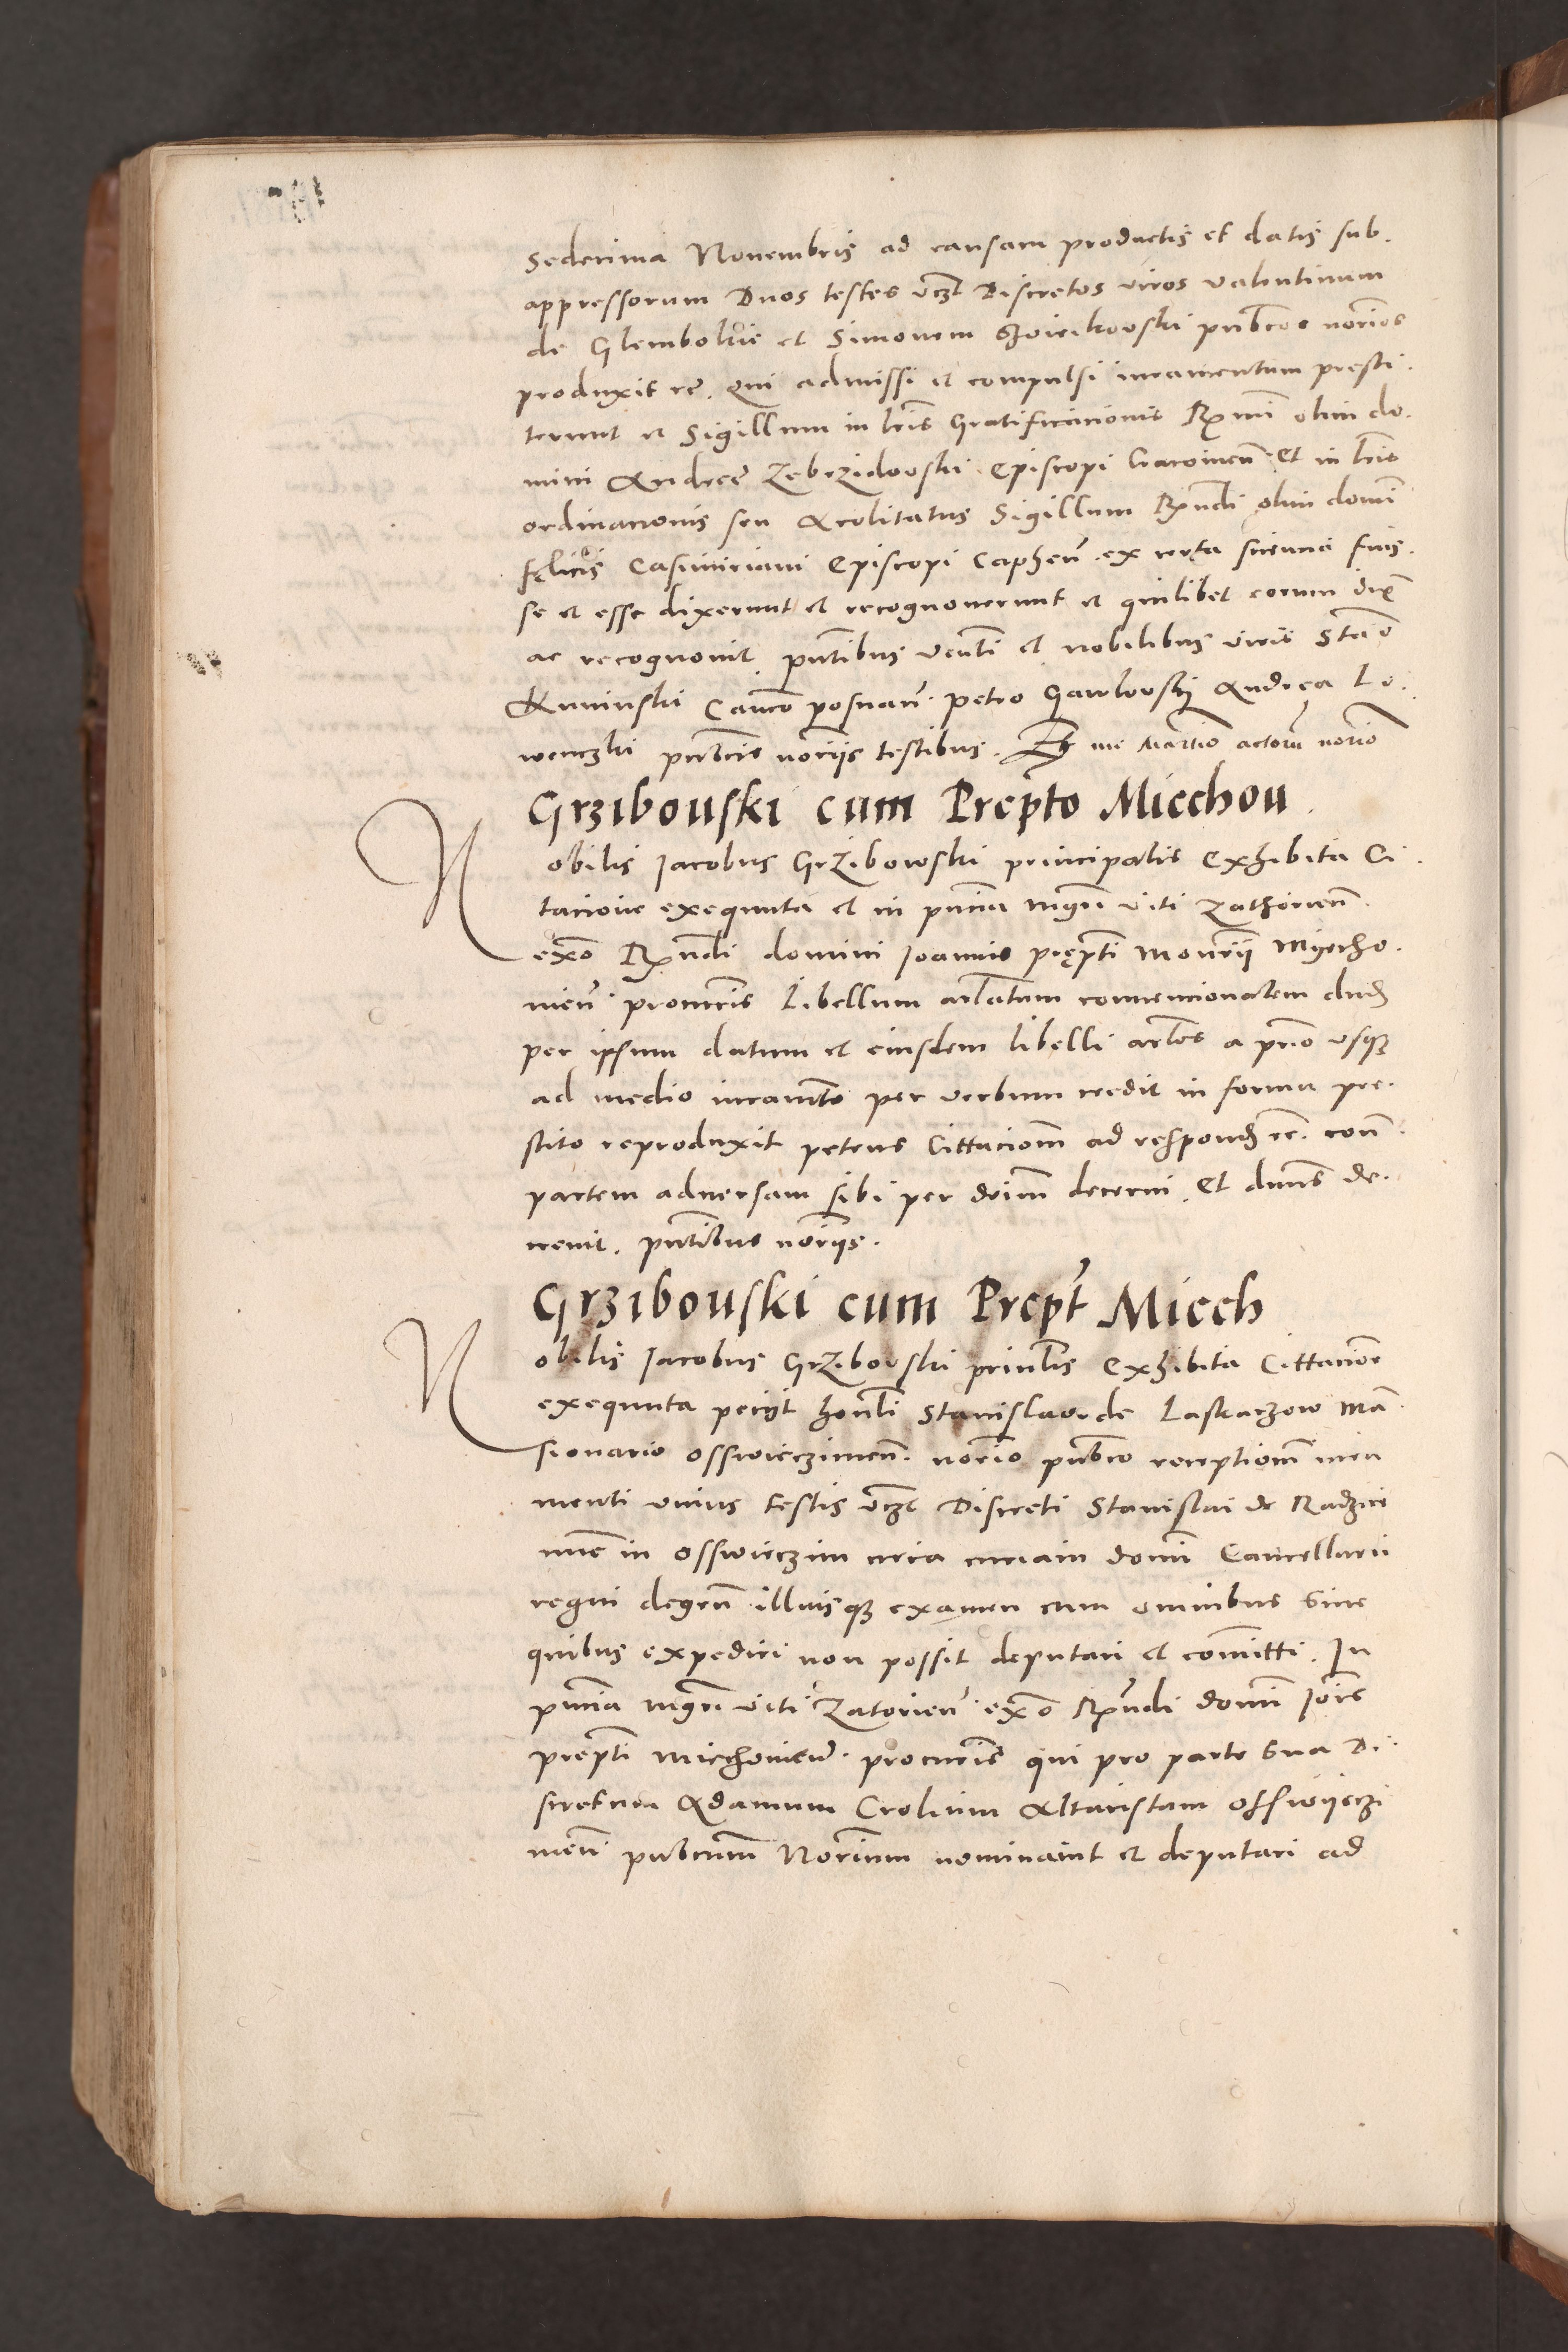 Sedecima Novembris ad causam productis et datis sub
appressorum Duos testes vczt Discretos viros Valentinum
de Glembokie et Simonem pubcos norios
produxit rc. Qui admissi et compulsi iuramentum presti
terunt et Sigillum in lris Gratificacionis Rmi olim do
mini Andree Zebrzidovski Episcopi Cracovien et in lris
ordinacionis seu Acolitatus Sigillum Rndi olim domi
felicis Casimiriani Episcopi Caphen ex certa sciencia fuis
se et esse dixerunt et recognoverunt et quilibet eorum dix
ac recognovit. pntibus venli et nobilibus viris Stao
Kuninski Canco posnan. Petro Gawlovski Andrea Lo
wenczki pubcis noriis testibus. Et me Martio actoru norio
Grzibouski cum Prepto Miechou
Nobilis Jacobus Grzibowski principalis exhibita Ci
tacione exequuta et in pncia mgri viti Zathorien
exo Rndi domini Joannis prepti Monrii Myecho
vien procuris Libellum arlatum convencionalem dud
per ipsum datum et eiusdem libelli arlos a prio usque
ad medio iuramto per verbum credit in forma pre
stito reproduxit petens Cittaciom ad respond rc. con
partem adversam sibi per doim decerni. Et duns de
crevit. pntibus noriis.
Grzibouski cum Prept Miech
Nobilis Jacobus Grzibovski princlis exhibita Cittacione
exequuta peciit honli Stanislao de Laskarzow Man
sionario Osswieczimen. norio pubco receptiom iura
menti unius testis vczt Discreti Stanislai de Radzice
nunc in Osswieczim circa curiam domi Cancellarii
regni degen illiusque examen cum omnibus sine
quibus expediri non possit deputari et comitti. In
pncia mgri viti Zatorien exo Rndi domi Jois
prepti Miechovien procuris qui pro parte sua Di
scretum Adamum Crolium Altaristam Osswiieczi
mien pubcum Norium nominavit et deputari ad